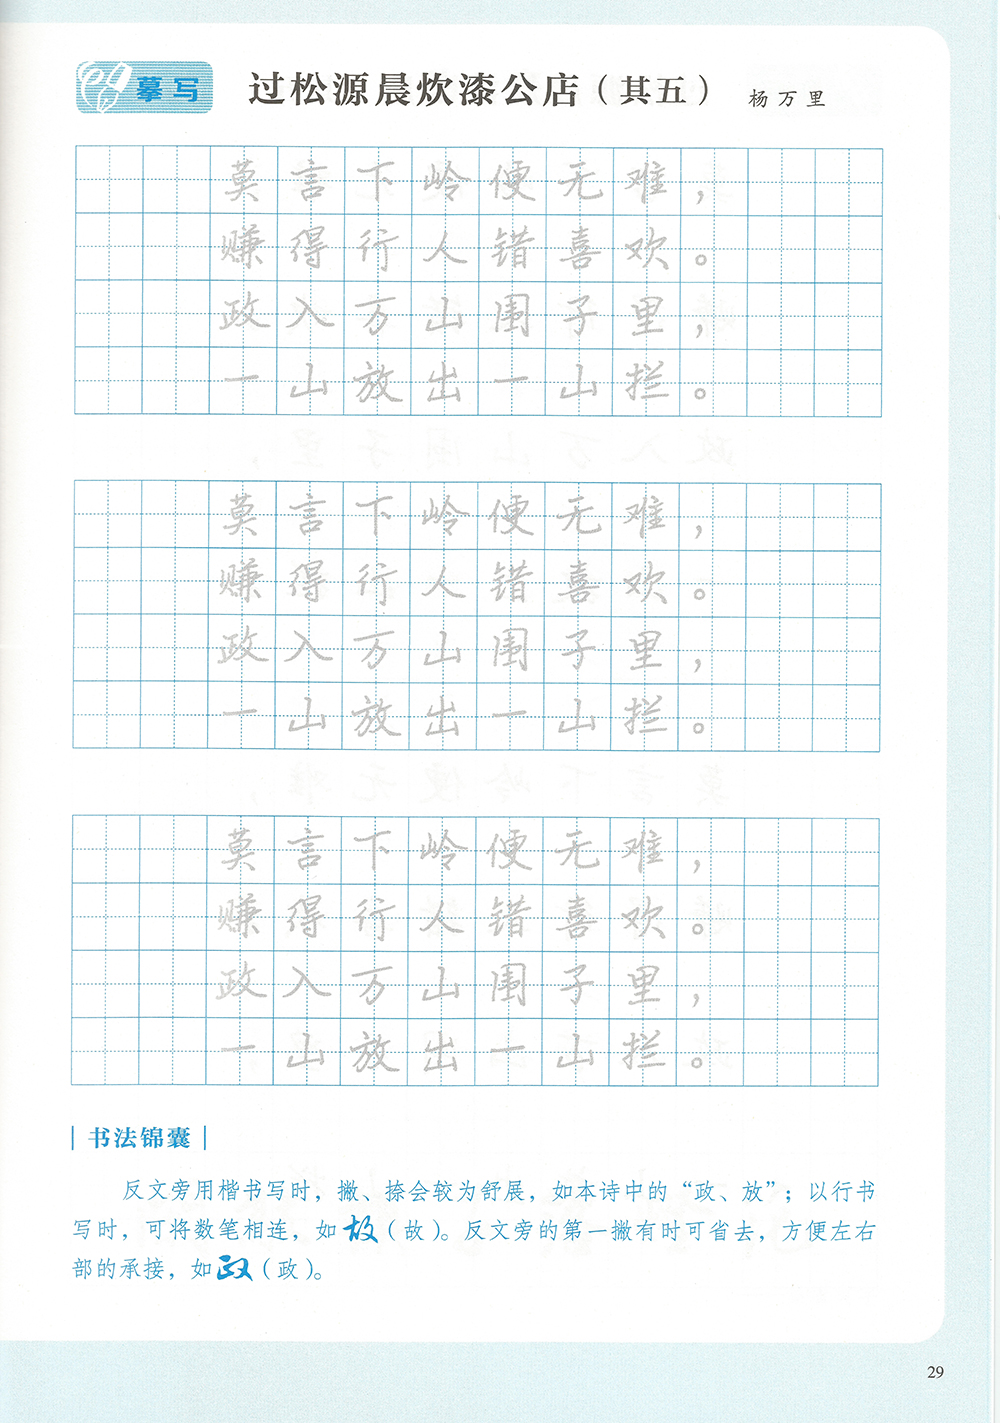 摹写
过松源晨炊漆公店（其五） 杨万里
莫言下岭便无难，
赚得行人错喜欢。
政入万山围子里，
一山放出一山拦。
莫言下岭便无难，
赚得行人错喜欢。
政入万山围子里，
一山放出一山拦。
莫言下岭便无难，
赚得行人错喜欢。
政入万山围子里，
一山放出一山拦。
书法锦囊
反文旁用楷书写时，撇、捺会较为舒展，如本诗中的“政、放”；以行书
写时，可将数笔相连，如故（故）。反文旁的第一撇有时可省去，方便左右
部的承接，如政（政）。
29